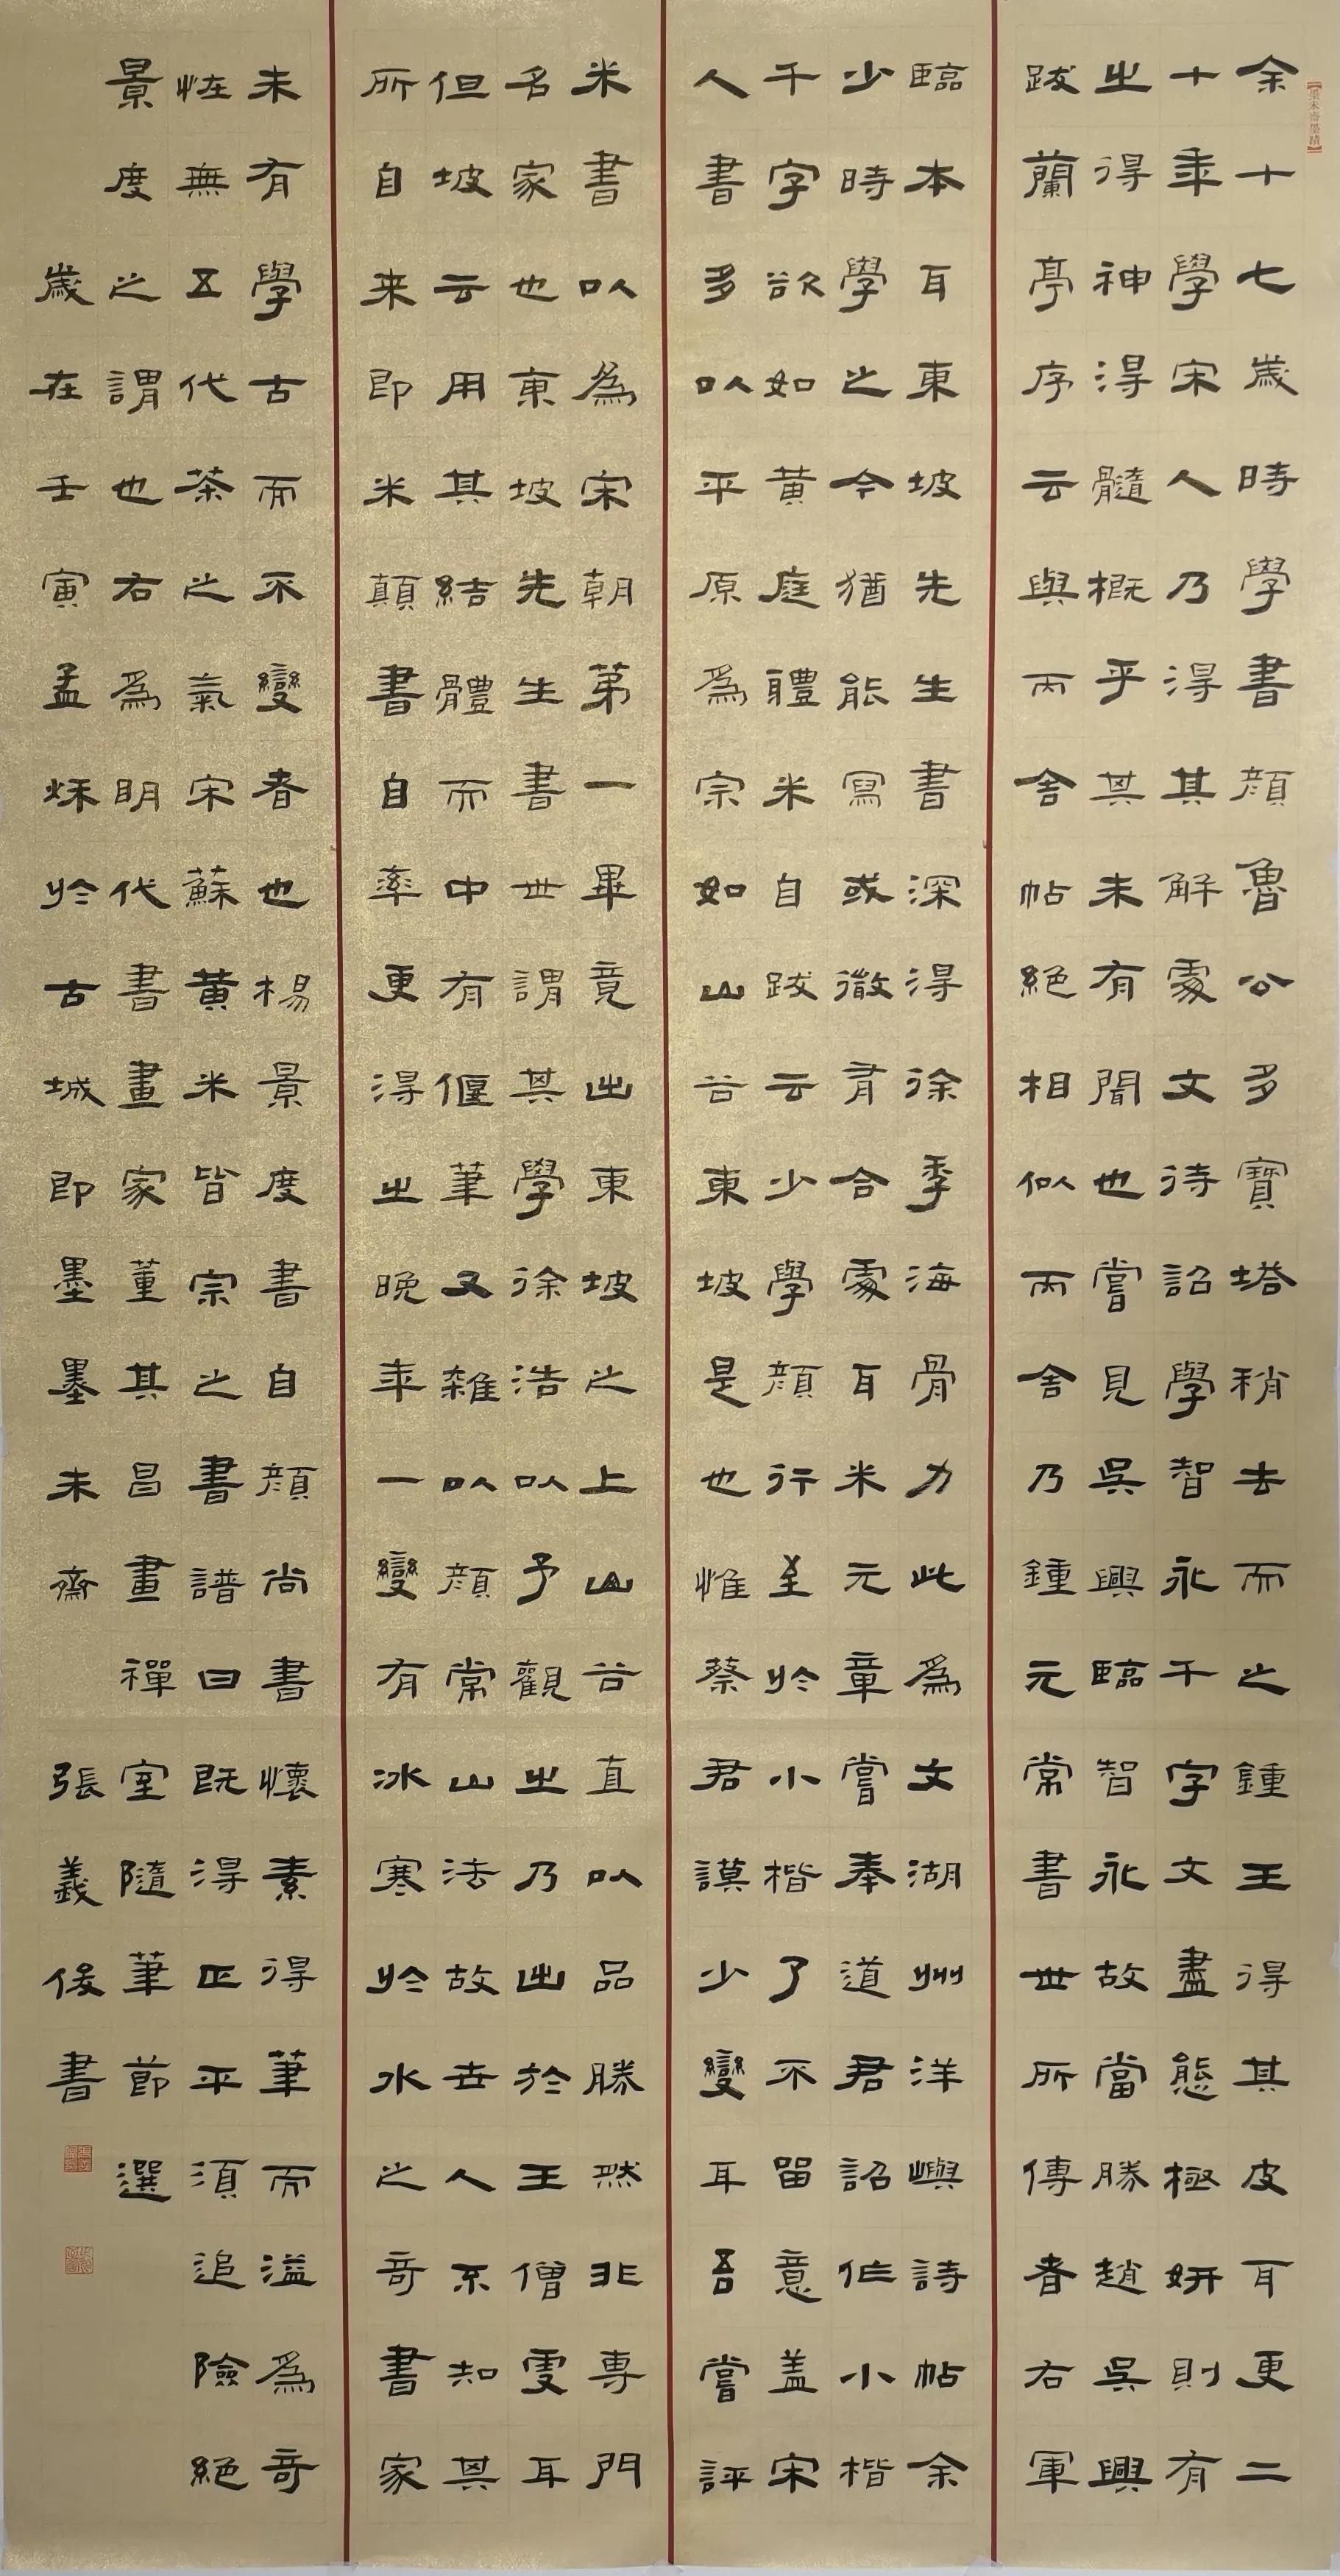 余十七歲時學書顏魯公多寶塔稍去而之鍾王得其皮耳更二
十年學宋人乃得其解處文待詔學智永千字文盡態極妍則有
之得神得髓概乎其未有聞也嘗見吳興臨智永故當勝趙吳興
跋蘭亭序云與丙舍帖絕相似丙舍乃鍾元常書世所傳者右軍
臨本耳東坡先生書深得徐季海骨力此為文湖州洋嶼詩帖余
少時學之今猶能寫或微有合處耳米元章嘗奉道君詔作小楷
千字欲如黃庭體米自跋云少學顏行至於小楷了不留意蓋宋
人書多以平原為宗如山谷東坡是也惟蔡君謨少變耳吾嘗評
米書以為宋朝第一畢竟出東坡之上山谷直以品勝然非專門
名家也東坡先生書世謂其學徐浩以予觀之乃出於王僧虔耳
但坡云用其結體而中有偃筆又雜以顏常山法故世人不知其
所自来即米顛書自率更得之晚年一變有冰寒於水之奇書家
未有學古而不變者也楊景度書自顏尚書懷素得筆而溢為奇
恠無五代茶之氣宋蘇黃米皆宗之書譜曰既得正平須追險絕
景度之謂也右為明代書畫家董其昌畫禪室隨筆節選
歲在壬寅孟秌於古城即墨墨未齋 張義俊書
墨未齋墨蹟